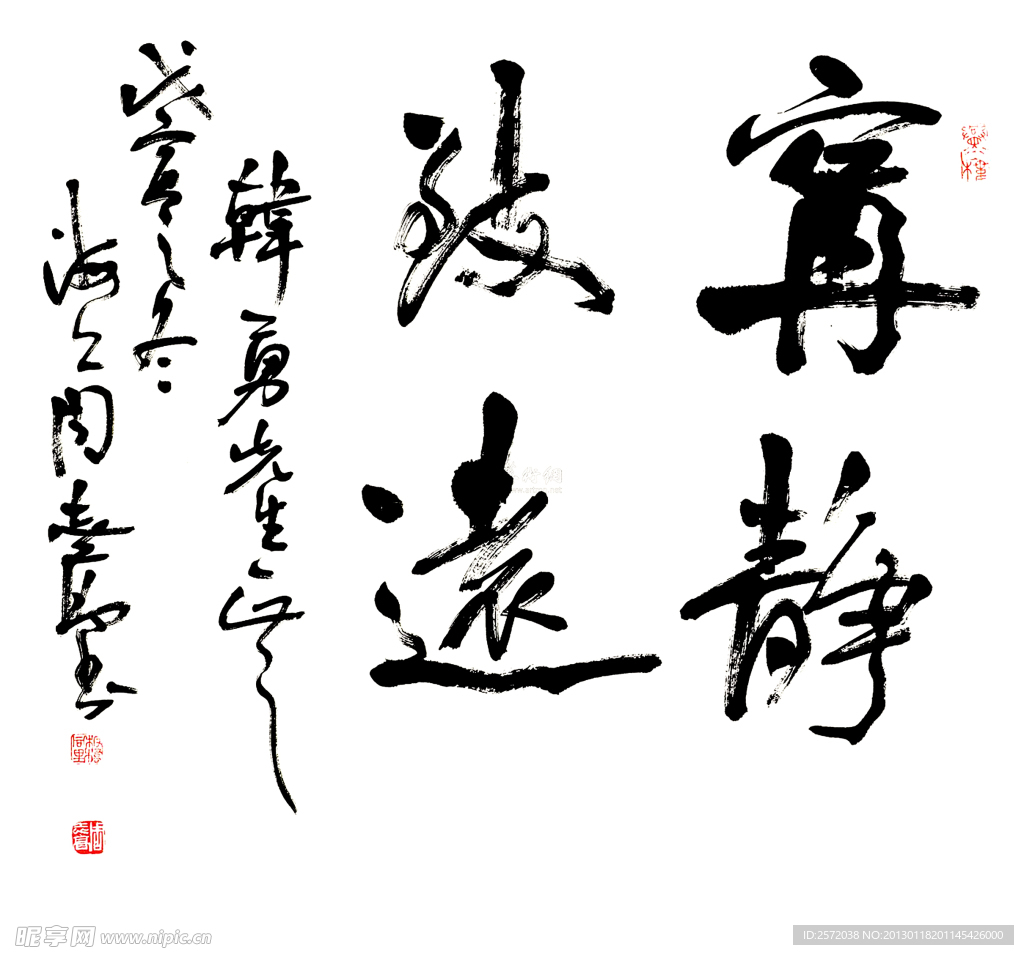 寧静
致遠
韓勇先生正之
戊寅之冬
海上周慧珺書
昵享网 www.nipic.cn
ID:2572038 NO:20130118201145426000